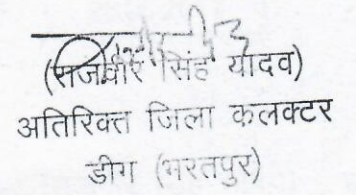 (राजवीर सिंह यादव)
अतिरिक्त जिला कलक्टर
डीग (भरतपुर)